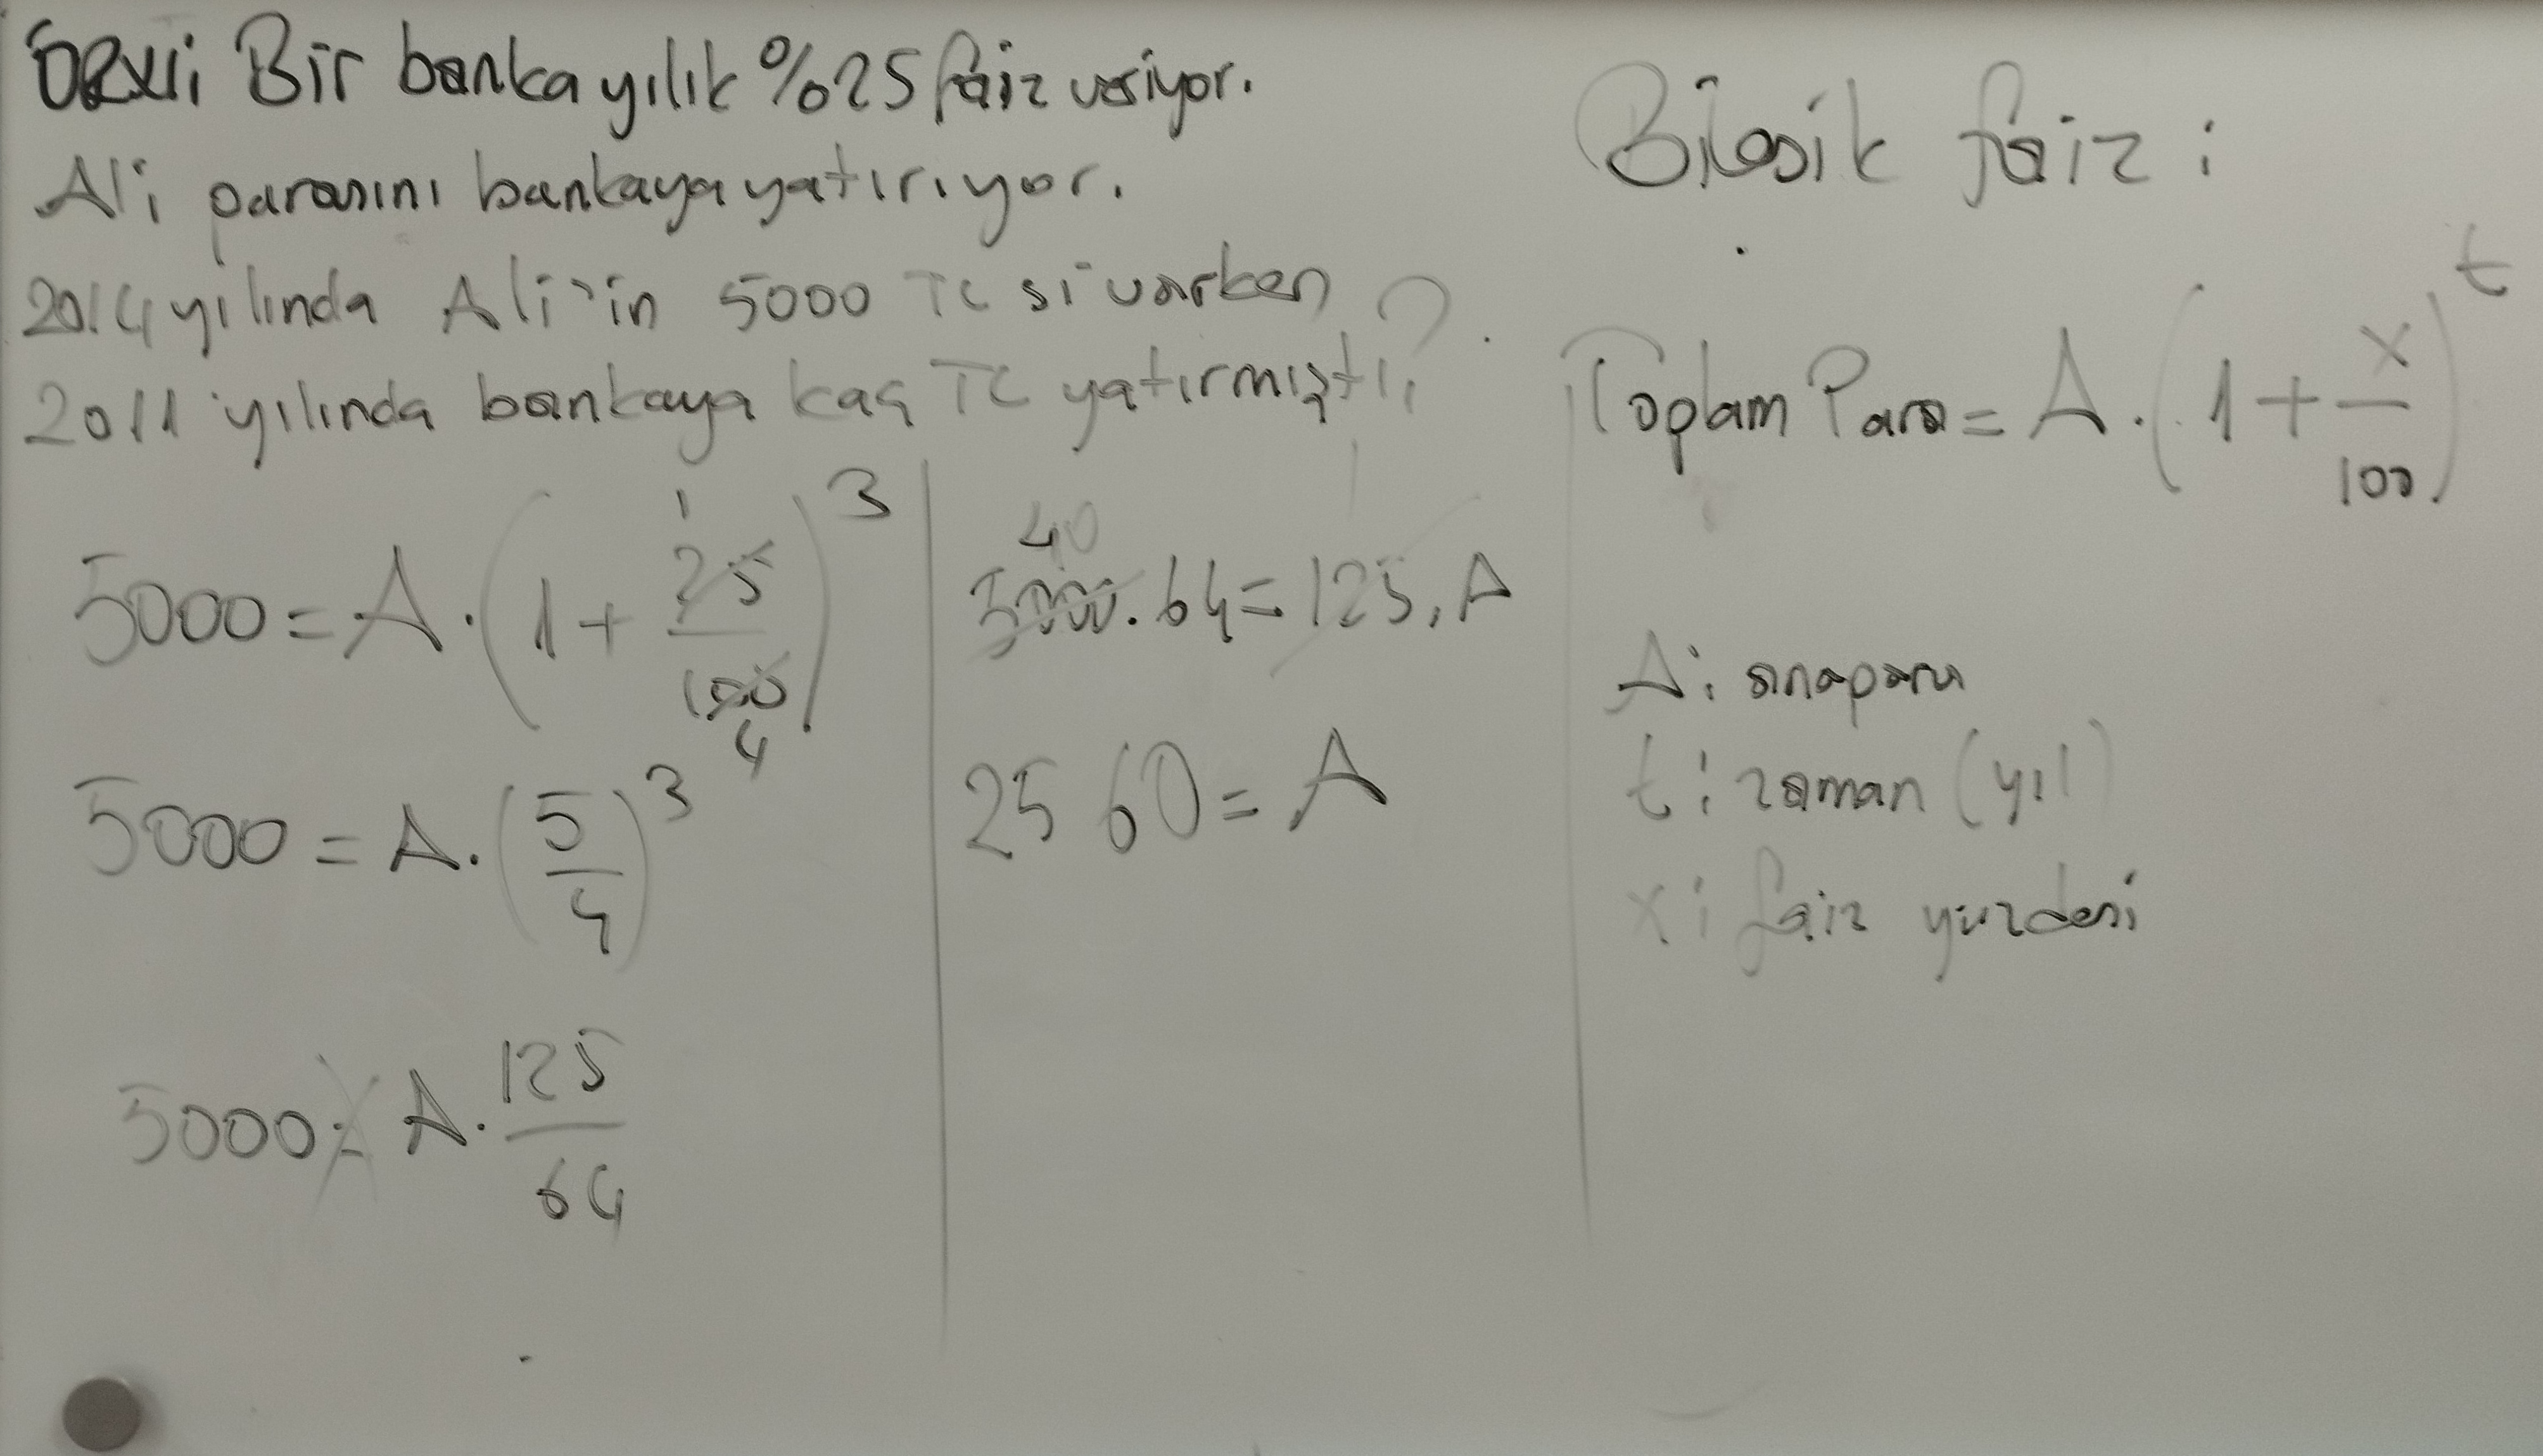 ÖRX1: Bir banka yıllık %25 faiz veriyor.
Ali parasını bankaya yatırıyor.
2014 yılında Ali'in 5000 TL si varken
2011 yılında bankaya kaç TL yatırmıştı?
5000 = A · (1 + 25/100)^3
1
4
5000 = A · (5/4)^3
5000 = A · 125/64
40
5000 · 64 = 125 · A
2560 = A
Bileşik faiz :
Toplam Para = A · (1 + x/100)^t
A: anapara
t: zaman (yıl)
x: faiz yüzdesi